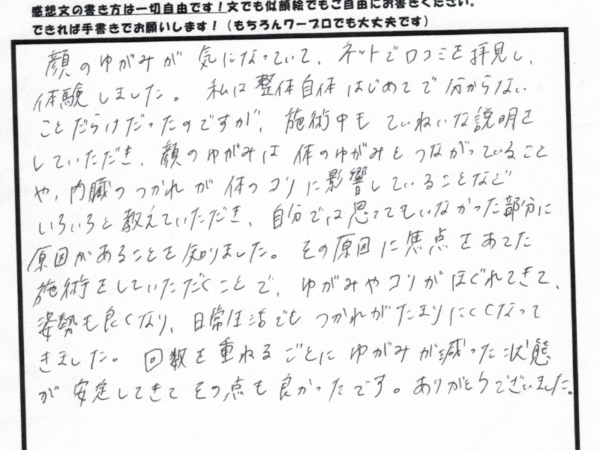 感想文の書き方は一切自由です！文でも似顔絵でもご自由にお書きください。
できれば手書きでお願いします！（もちろんワープロでも大丈夫です）
顔のゆがみが気になっていて、ネットで口コミを拝見し、
体験しました。私は整体自体はじめてで分からない
ことだらけだったのですが、施術中もていねいな説明を
していただき、顔のゆがみは体のゆがみとつながっていること
や、内臓のつかれが体のコリに影響していることなど
いろいろと教えていただき、自分では思ってもいなかった部分に
原因があることを知りました。その原因に焦点をあてた
施術をしていただくことで、ゆがみやコリがほぐれてきて、
姿勢も良くなり、日常生活でもつかれがたまりにくくなって
きました。回数を重ねるごとにゆがみが減った状態
が安定してきてその点も良かったです。ありがとうございました。